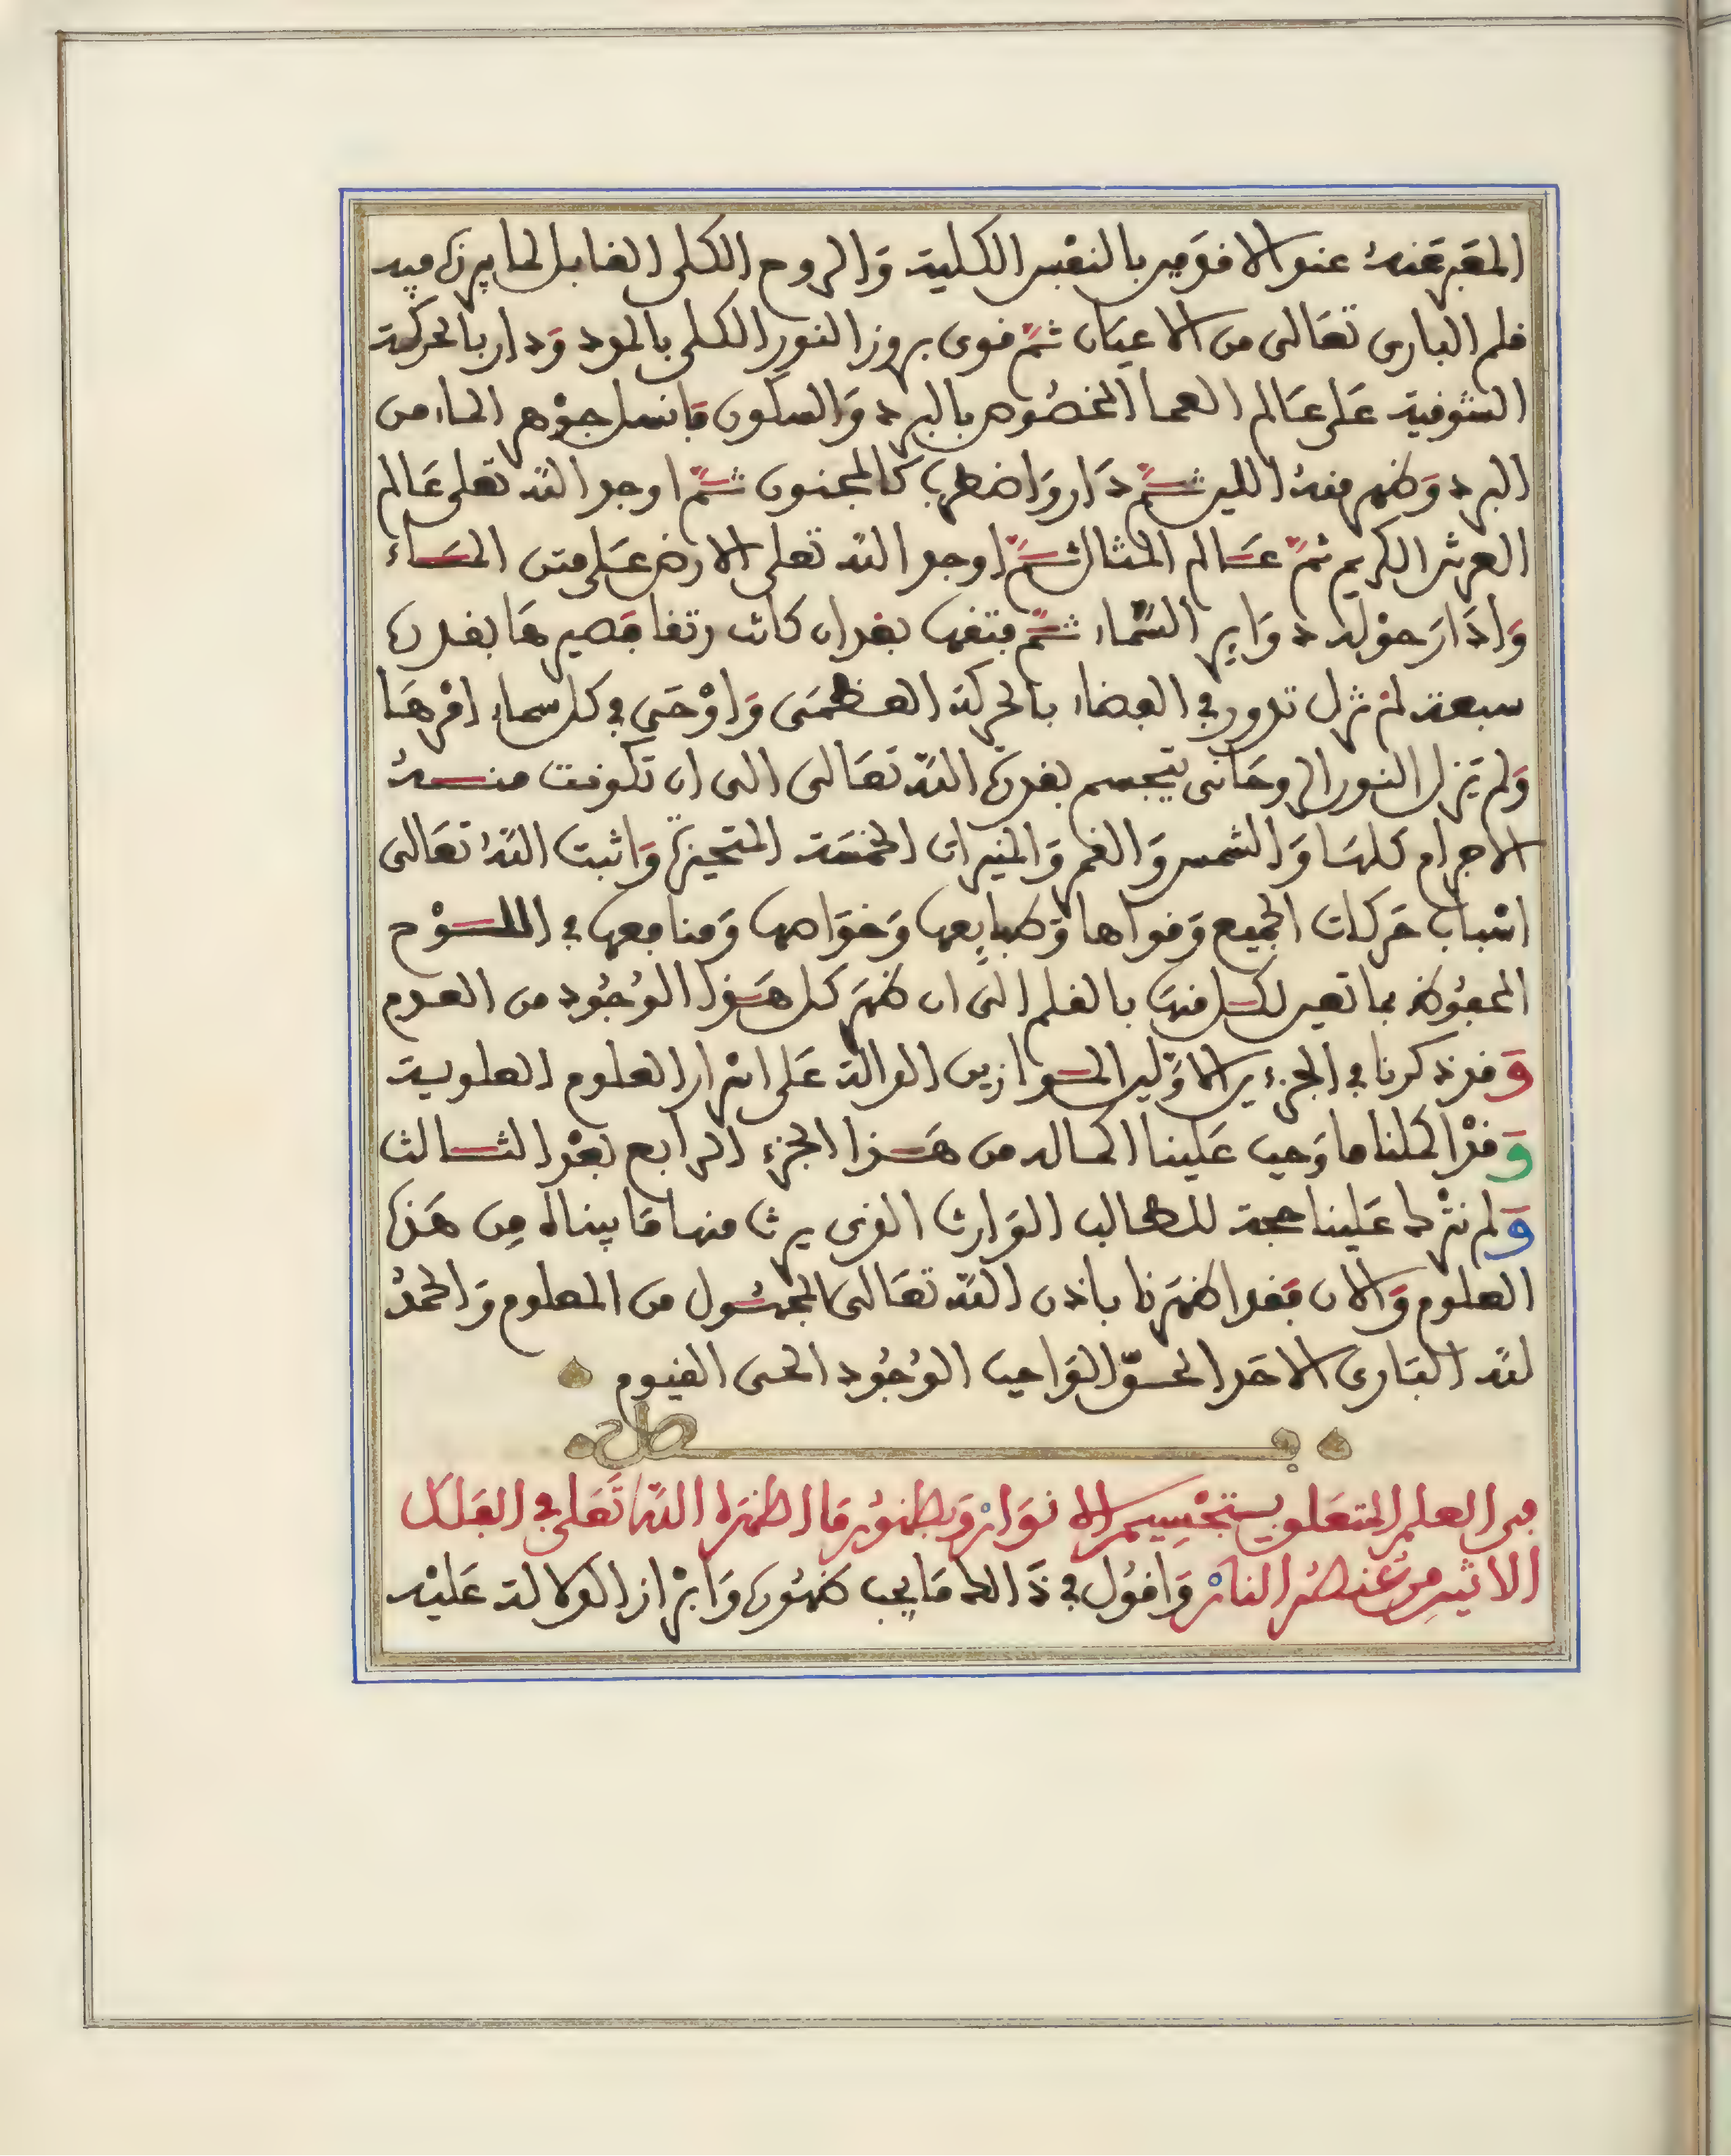 المعبر عنه عند الاقدمين بالنفس الكلية والروح الكلي القابل لما يبرزه فيه
قلم الباري تعالى من الاعيان ثم قوى بروز النور الكلي بالمدد ودار بالحركة
الشوقية على عالم العما المخصوص بالبرد والسكون فانسل جوهر الماء من
البرد وظهر منه اللين ثم دار واضطرب كالمجنون ثم اوجد الله تعلى عالم
العرش الكريم ثم عالم المثال ثم اوجد الله تعلى الارض على متن الماء
وادار حوله دواير السماء ثم فتقها بعد ان كانت رتقا فصيرها بقدرته
سبعة لم تزل تدور في الفضاء بالحركة العظمى واوحى في كل سماء امرها
ولم يزل النور الروحاني يتجسم بقدرة الله تعالى الى ان تكونت منه
الاجرام كلها والشمس والقمر والنيران الخمسة المتحيزة واثبت الله تعالى
اسباب حركات الجميع وقواها وطبايعها وخواصها ومنافعها في اللوح
المحفوظ بما تعين لكل منها بالقلم الى ان ظهر كل هذا الوجود من العدم
وقد ذكرنا في الجزءين الاولين الموازين الدالة على اسرار العلوم العلوية
وقد اكملنا ما وجب علينا اكماله من هذا الجزء الرابع بعد الثالث
ولم نترك علينا حجة للطالب الوارث الذي يرث منها ما بيناه من هذه
العلوم والان فقد اظهرنا باذن الله تعالى المجهول من المعلوم والحمد
لله الباري الاحد الحق الواجب الوجود الحي القيوم
فصل
في العلم المتعلق بتجسيم الانوار وبظهور ما اظهره الله تعلى في الفلك
الاثير من عنصر النار واقول في ذالك ما يجب ظهوره وابراز الدلالة عليه